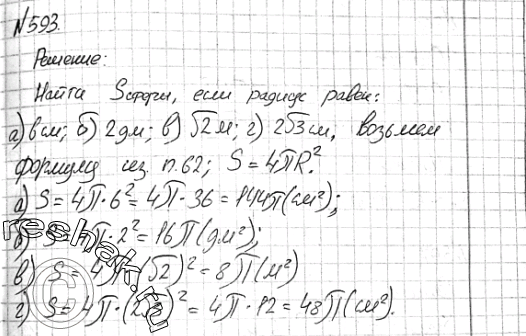 №593.
Решение:
Найти Sсферы, если радиус равен:
а) 6см; б) 2дм; в) √2м; г) 2√3см, Возьмем
формулу из п.62; S=4πR².
а) S=4π·6²=4π·36=144π(см²);
б) S=4π·2²=16π(дм²);
в) S=4π·(√2)²=8π(м²)
г) S=4π·(2√3)²=4π·12=48π(см²).
reshak.ru
©